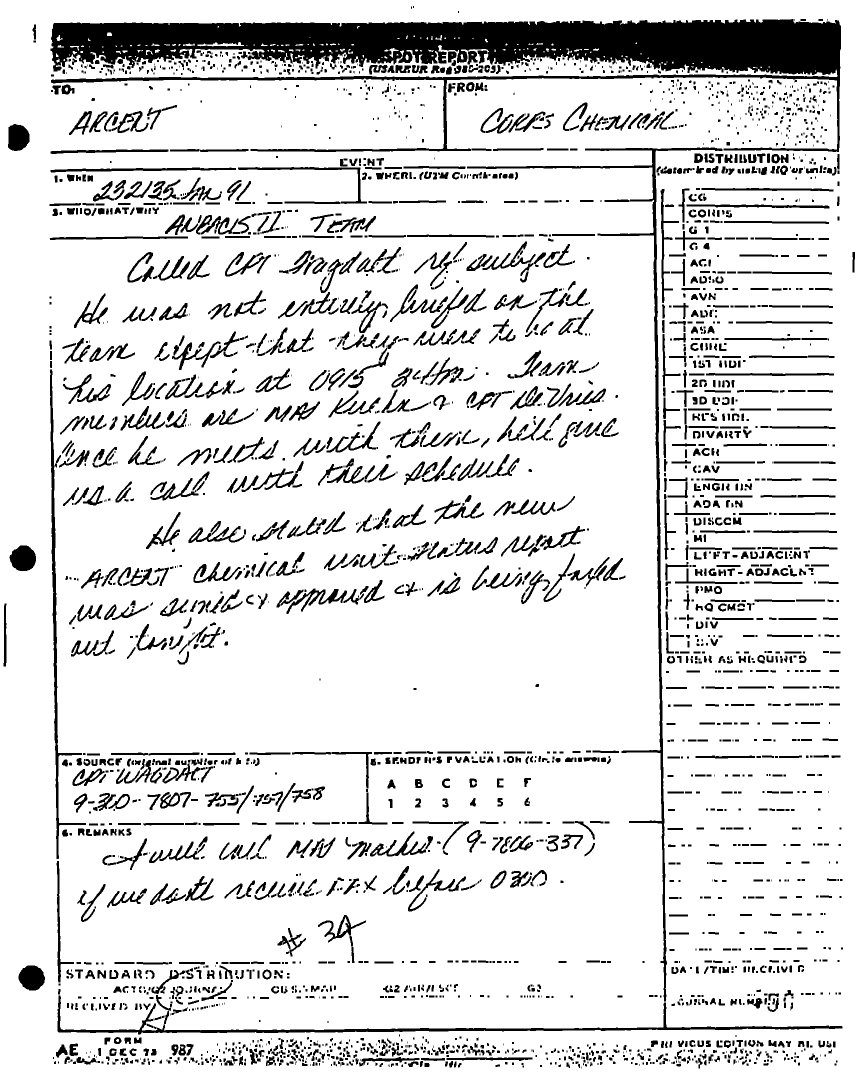 SPOT REPORT
(USAREUR Reg 380-205)
TO:
ARCENT
FROM:
CORPS CHEMICAL
EVENT
1. WHEN
232135 Jan 91
2. WHERE (UTM Coordinates)
3. WHO/WHAT/WHY
ANBACIS II TEAM
Called CPT Wagdatt ref subject.
He was not entirely briefed on the
team except that they were to be at
his location at 0915 24 Jan. Team
members are MAJ Kuehn & CPT DeVries.
Once he meets with them, he'll give
us a call with their schedule.
He also stated that the new
ARCENT chemical unit status report
was signed & approved & is being faxed
out tonight.
4. SOURCE (original supplier of info)
CPT WAGDATT
9-300-7807-755/757/758
5. SENDER'S EVALUATION (Circle answers)
A B C D E F
1 2 3 4 5 6
6. REMARKS
I will call MAJ (9-7806-337)
if we don't receive FAX before 0300.
# 34
STANDARD DISTRIBUTION:
ACTG/G2 JOURNAL G2 AIR G2
RECEIVED BY
DISTRIBUTION
(determined by using HQ or units)
CG
CORPS
G 1
G 4
ACI
ADSO
AVN
ADE
ASA
CBRE
1ST BDE
2D BDE
3D BDE
RES BDE
DIVARTY
ACR
CAV
ENGR BN
ADA BN
DISCOM
MI
LEFT-ADJACENT
RIGHT-ADJACENT
PMO
HQ CMDT
DIV
DIV
OTHER AS REQUIRED
DATE/TIME RECEIVED
JOURNAL NUMBER
AE FORM 1 DEC 73 987
PREVIOUS EDITION MAY BE USED